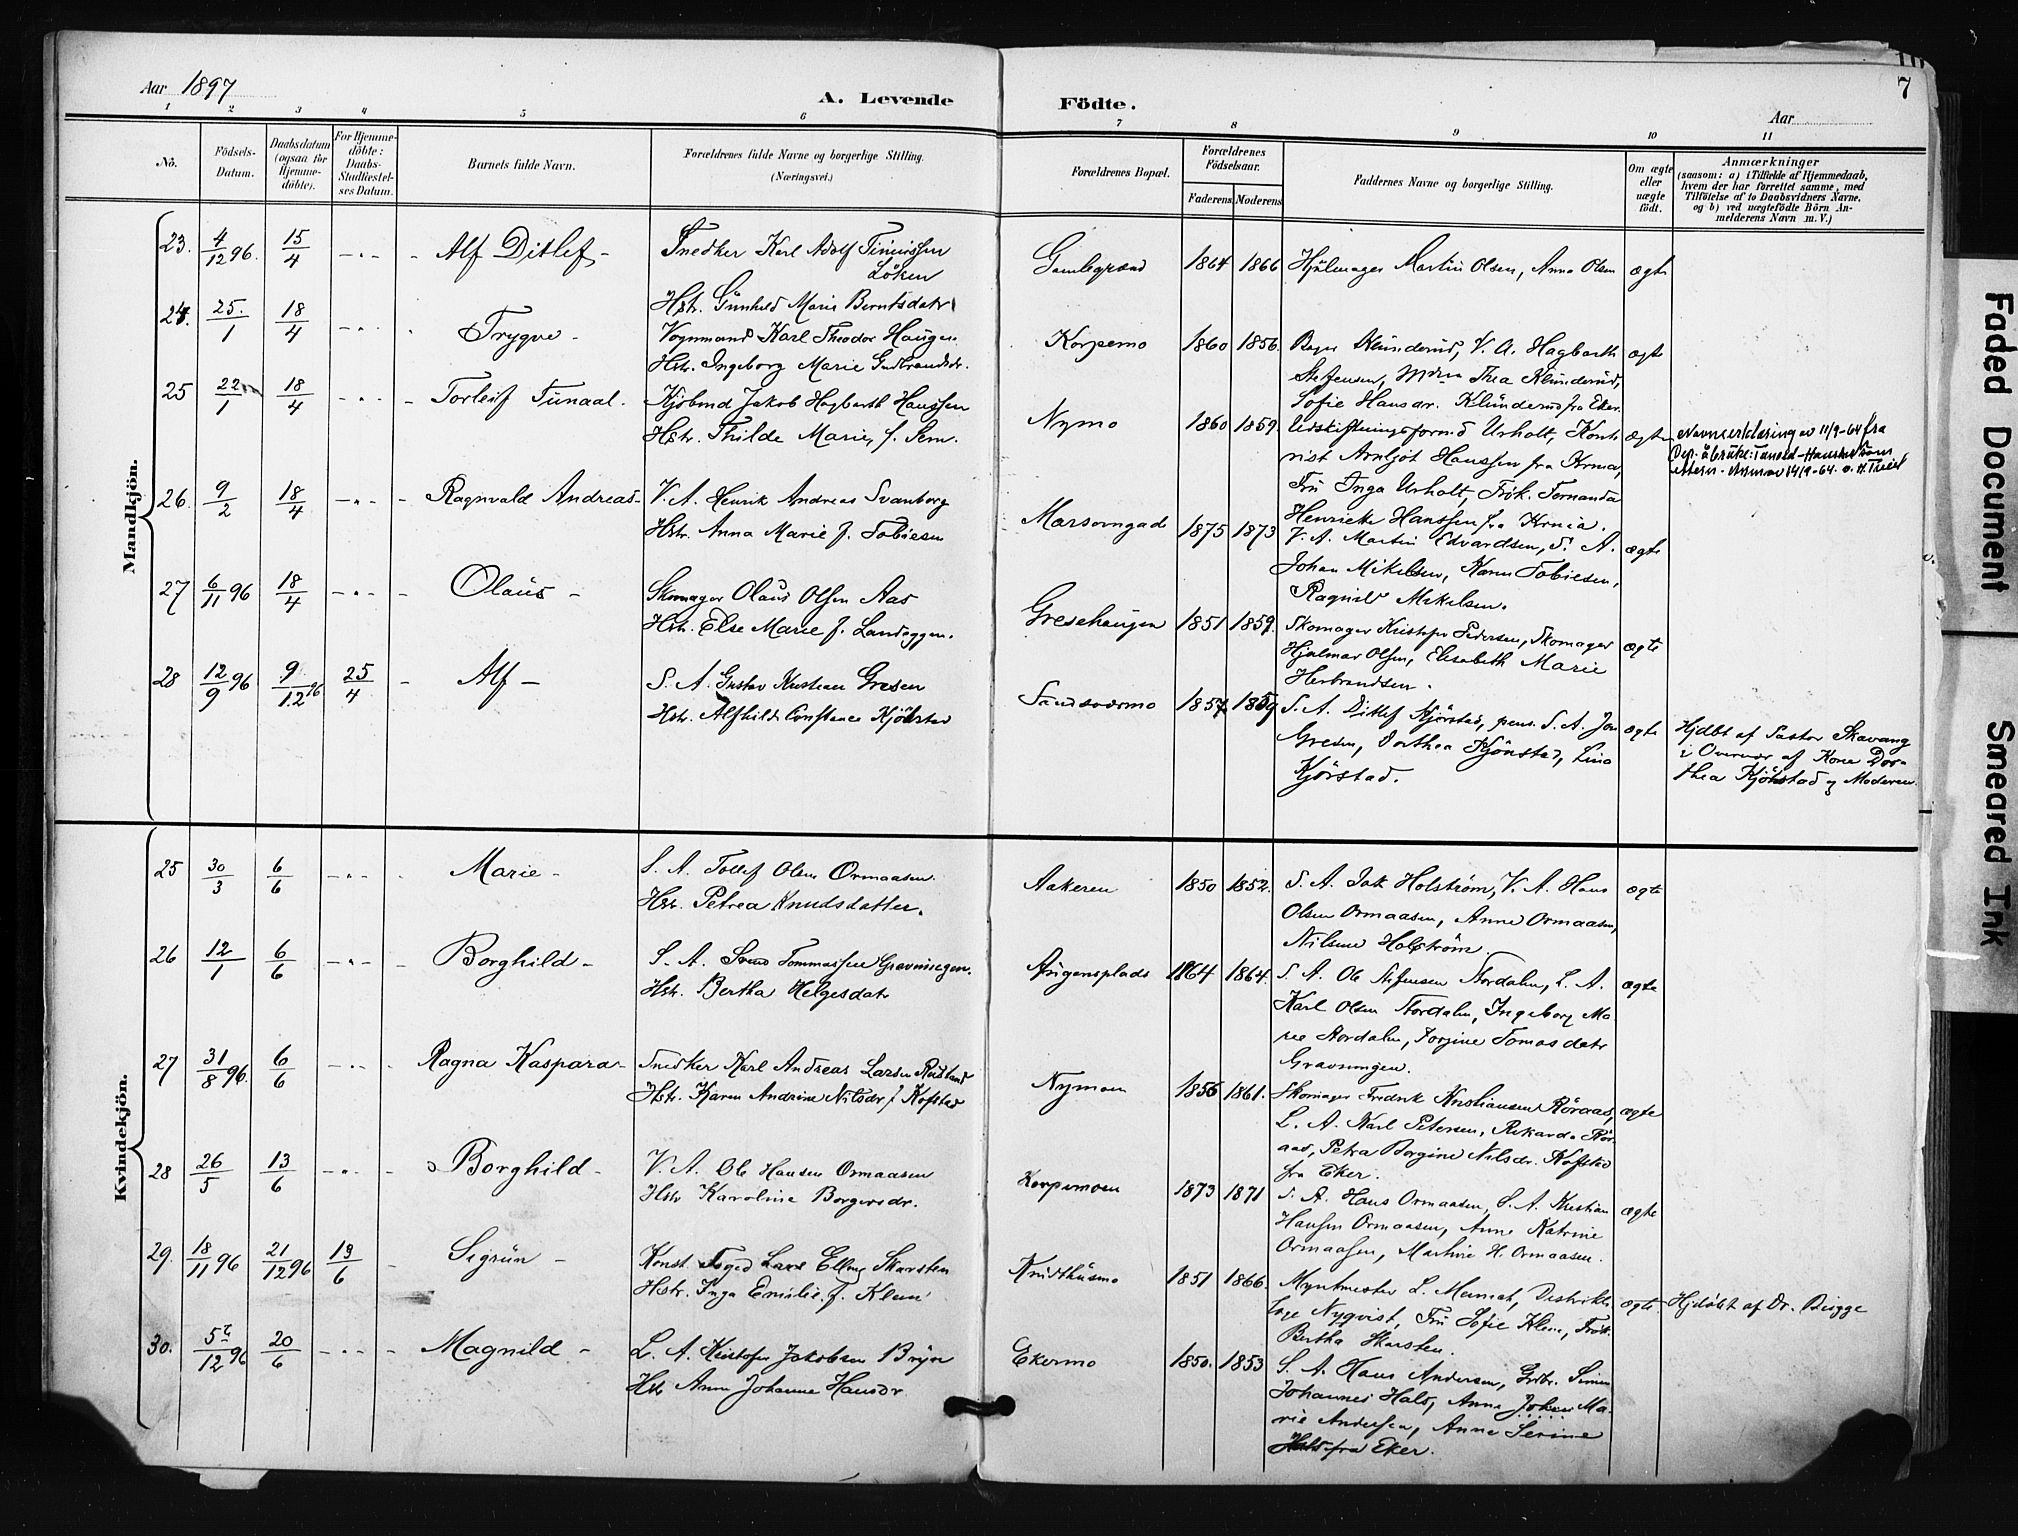 Aar 1897
A. Levende Födte.
Aar
7
1 2 3 4 5 6 7 8 9 10 11
No.
Födsels-Datum.
Daabsdatum (ogsaa for Hjemmedöbte).
For Hjemmedöbte: Daabs-Stadfæstelses Datum.
Barnets fulde Navn.
Forældrenes fulde Navne og borgerlige Stilling.
(Næringsvei.)
Forældrenes Bopæl.
Forældrenes Födselsaar.
Faderens Moderens
Faddernes Navne og borgerlige Stilling.
Om ægte eller uægte födt.
Anmærkninger
(saasom: a) i Tilfælde af Hjemmedaab,
hvem der har forrettet samme, med
Tilföielse af to Daabsvidners Navne,
og b) ved uægtefödte Börn An-
melderens Navn m. V.)
Mandkjön.
23. 4/12 96. 15/4 Alf Ditlef Snedker Karl Adolf
Löken
Hstr. Gunhild Marie Berntsdatr
1864 1866 Hjulmager Martin Olsen, Anna Olsen ægte
24. 25./1 18/4 Trygve Vognmand Karl Theodor Haugen
Hstr. Ingeborg Marie Gudbrandsdr.
Korpemo 1860 1856. Klunderud, V. A. Hagbarth ægte
Steffensen, Thea Klunderud,
Sofie Hansdr. Klunderud fra Eker.
25 22/1 18/4 Torleif Tunaal Kjöbmd Jakob Hagbarth Hanssen
Hstr. Thilde Marie, f. Sem.
Nymo 1860 1859. Udskiftningsformd Urholt, Konto
rist Arnljot Hanssen fra Krnia,
Fru Inga Urholt, Frök. Fernanda
Henriette Hanssen fra Krnia.
Navneerklæring av 11/9-64 fra
26. 9/2 18/4 Ragnvald Andreas V. A. Henrik Andreas Svanborg
Hstr. Anna Marie f. Tobiesen
1875 1873 V. A. Martin Edvardsen, S. A. ægte
Johan Mikelsen, Karen Tobiesen,
Ragnild Mikelsen.
27 6/11 96 18/4 Olaus Skomager Olaus Olsen Aas
Hstr. Else Marie f. Landeggen.
Gresehaugen 1851 1859. Skomager Kristofer Pedersen, Skomager ægte
Hjalmar Olsen, Elisabeth Marie
Herbrandsen.
28 12/9 96 9/12 96 25/4 Alf S. A. Gustav Kristian Gresen
Hstr. Alfhild Constance Kjörstad
Sandsværmo 1857 1859 S. A. Ditlef Kjörstad, pens. S. A. Jon ægte
Gresen, Dorthea Kjörstad, Lina
Kjörstad.
Hjdbt af Pastor Skavang
i Overvær af Kone Dor-
thea Kjörstad og Moderen.
Kvindekjön.
25 30/3 6/6 Marie S. A. Tollef Olsen Ormaasen.
Hstr. Petrea Knudsdatter.
Aakeren 1850 1852. S. A. Holström, V. A. Hans ægte
Olsen Ormaasen, Anne Ormaasen,
Nilsine Holström.
26 12/1 6/6 Borghild S. A. Svend Tommassen Gravningen.
Hstr. Bertha Helgesdatr
1864 1864. S. A. Ole Steffensen Stordalen, L. A. ægte
Karl Olsen Stordalen, Ingeborg Ma
rie Stordalen, Jorgine Tomasdatr
Gravningen.
27 31/8 96. 6/6 Ragna Kaspara Snedker Karl Andreas Larsen Rustand
Hstr. Karen Andrine Nilsdr f. Kofstad
Nymoen 1856 1861. Skomager Fredrik Kristiansen Röraas, ægte
L. A. Karl Petersen, Rikarda Rör-
aas, Petra Borgine Nilsdr. Kofstad
fra Eker.
28 26/5 13/6 Borghild V. A. Ole Hansen Ormaasen
Hstr Karoline Borgersdr.
Korpemoen 1873 1871 S. A. Hans Ormaasen, S. A. Kristian ægte
Hansen Ormaasen, Anne Katrine
Ormaasen, Martine H. Ormaasen.
29. 18/11 96 21/12 96 13/6 Sigrun Konst. Foged Lars Elling Skarsten
Hstr. Inga Emilie f. Klem
Krudthusmo 1851 1866. Myntmester L. Memat, Distrikts ægte
læge Nyqvist, Fru Sofie Klem, Frök.
Bertha Skarsten.
Hjdöbt af Dr. Bugge
30. 5/12 96 20/6 Magnild L. A. Kristofer Jakobsen Bryn
Hstr Anne Johanne Hansdr
Ekermo 1850. 1853 S. A. Hans Andersen, Grdbr. Simen
Johannes Hals, Anna Johan Ma-
rie Andersen, Anne Serine
Hals fra Eker.
Faded Document
Smeared Ink